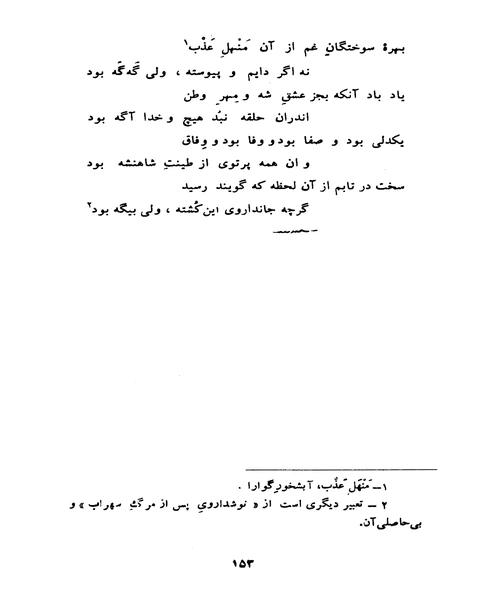 بهرهٔ سوختگانِ غم از آن مَنْهلِ عَذْب۱
نه اگر دایم و پیوسته ، ولی گه‌گه بود
یاد باد آنکه بجز عشقِ شه و مِهرِ وطن
اندران حلقه نبُد هیچ و خدا آگه بود
یکدلی بود و صفا بود و وفا بود و وِفاق
و ان همه پرتوی از طینتِ شاهنشه بود
سخت در تابم از آن لحظه که گویند رسید
گرچه جانداروی این کُشته ، ولی بیگه بود۲
۱ــ مَنْهَلِ عَذْب، آبشخورِ گوارا .
۲ ــ تعبیر دیگری است از «نوشداروی پس از مرگِ سهراب» و
بی‌حاصلی آن.
۱۵۳